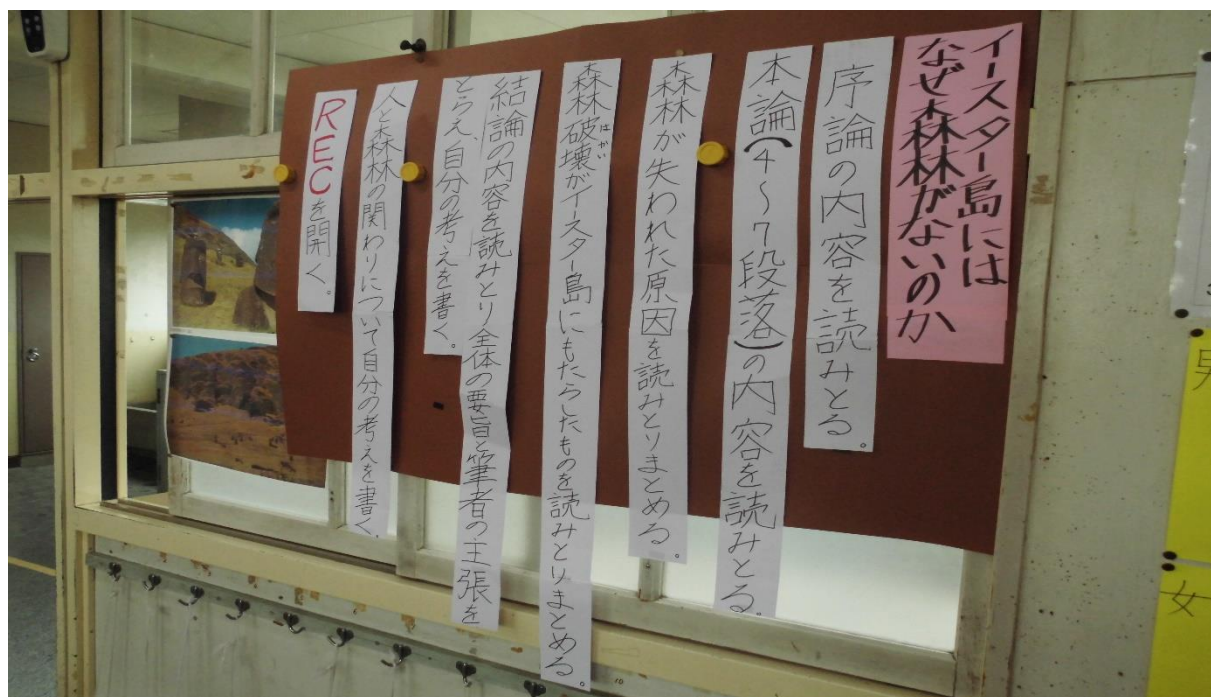 イースター島には
なぜ森林がないのか
序論の内容を読みとる。
本論(4～7段落)の内容を読みとる。
森林が失われた原因を読みとりまとめる。
森林破壊がイースター島にもたらしたものを読みとりまとめる。
はかい
結論の内容を読みとり全体の要旨と筆者の主張を
とらえ、自分の考えを書く。
人と森林の関わりについて自分の考えを書く。
RECを開く。
男
女